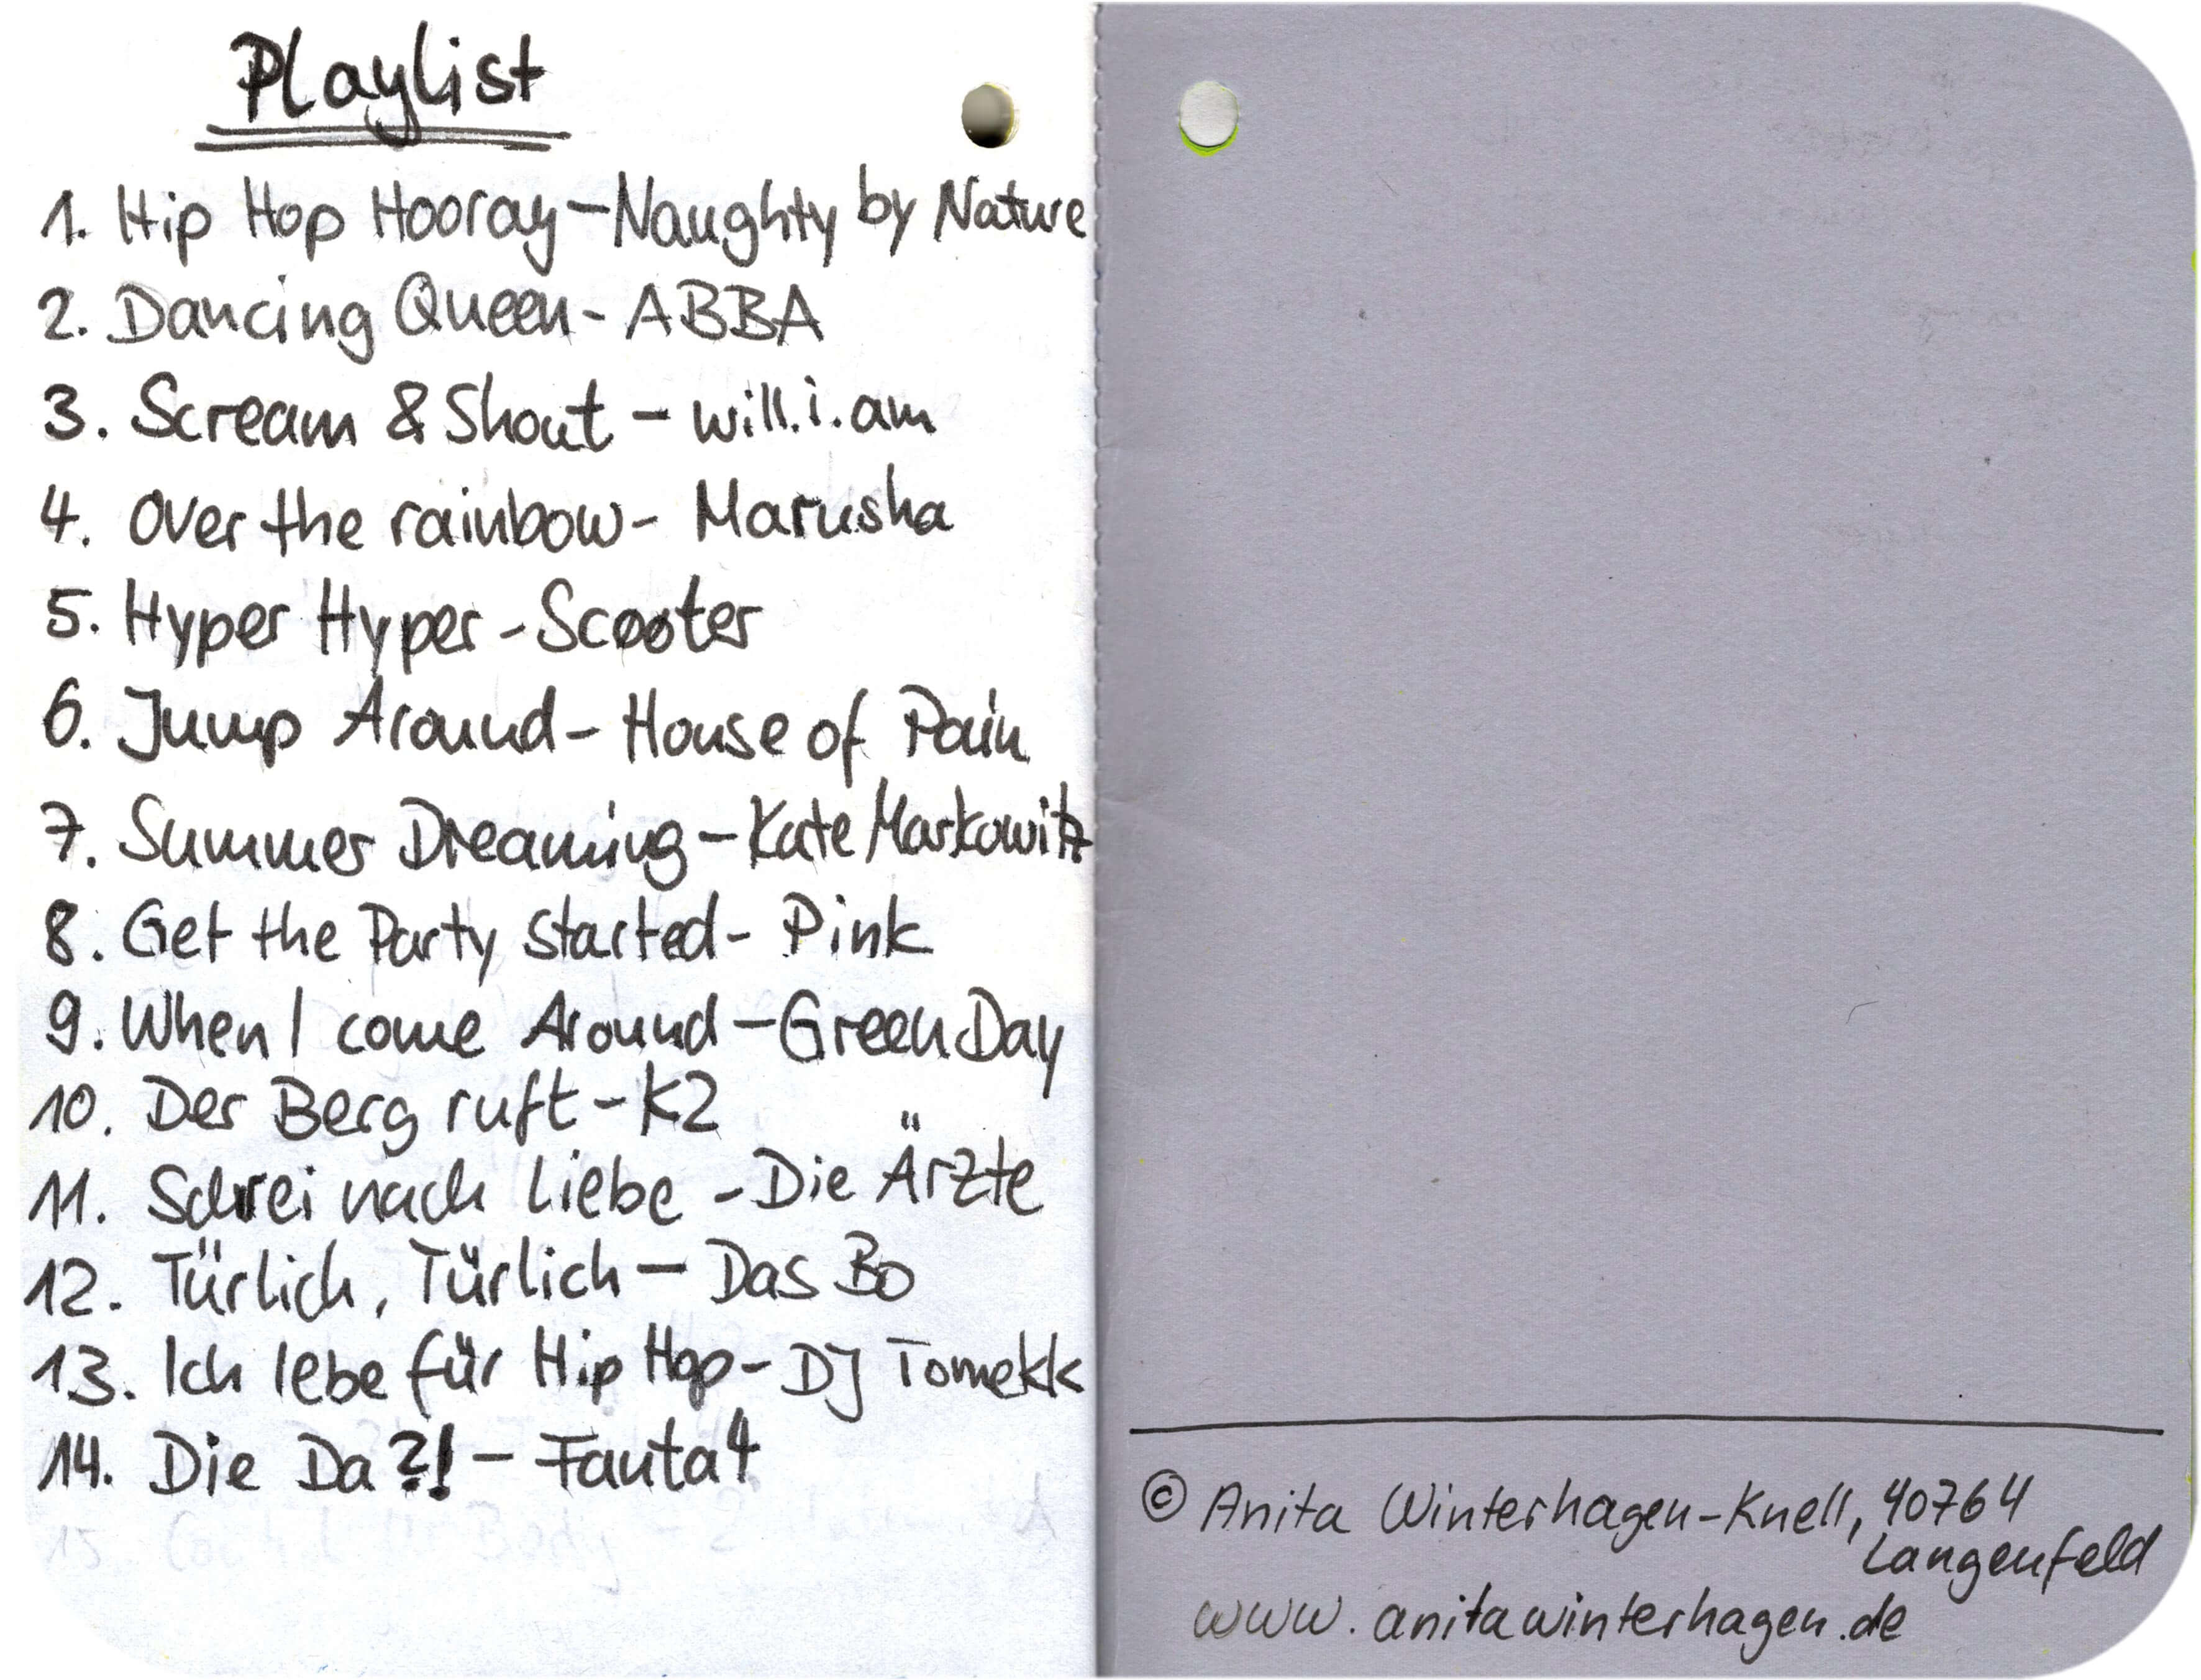 Playlist
1. Hip Hop Hooray - Naughty by Nature
2. Dancing Queen - ABBA
3. Scream & Shout - will.i.am
4. Over the rainbow - Marusha
5. Hyper Hyper - Scooter
6. Jump Around - House of Pain
7. Summer Dreaming - Kate Markowitz
8. Get the Party started - Pink
9. When I come Around - Green Day
10. Der Berg ruft - K2
11. Schrei nach Liebe - Die Ärzte
12. Türlich, Türlich - Das Bo
13. Ich lebe für Hip Hop - DJ Tomekk
14. Die Da?! - Fanta4
15.
© Anita Winterhagen-Knell, 40764
Langenfeld
www.anitawinterhagen.de